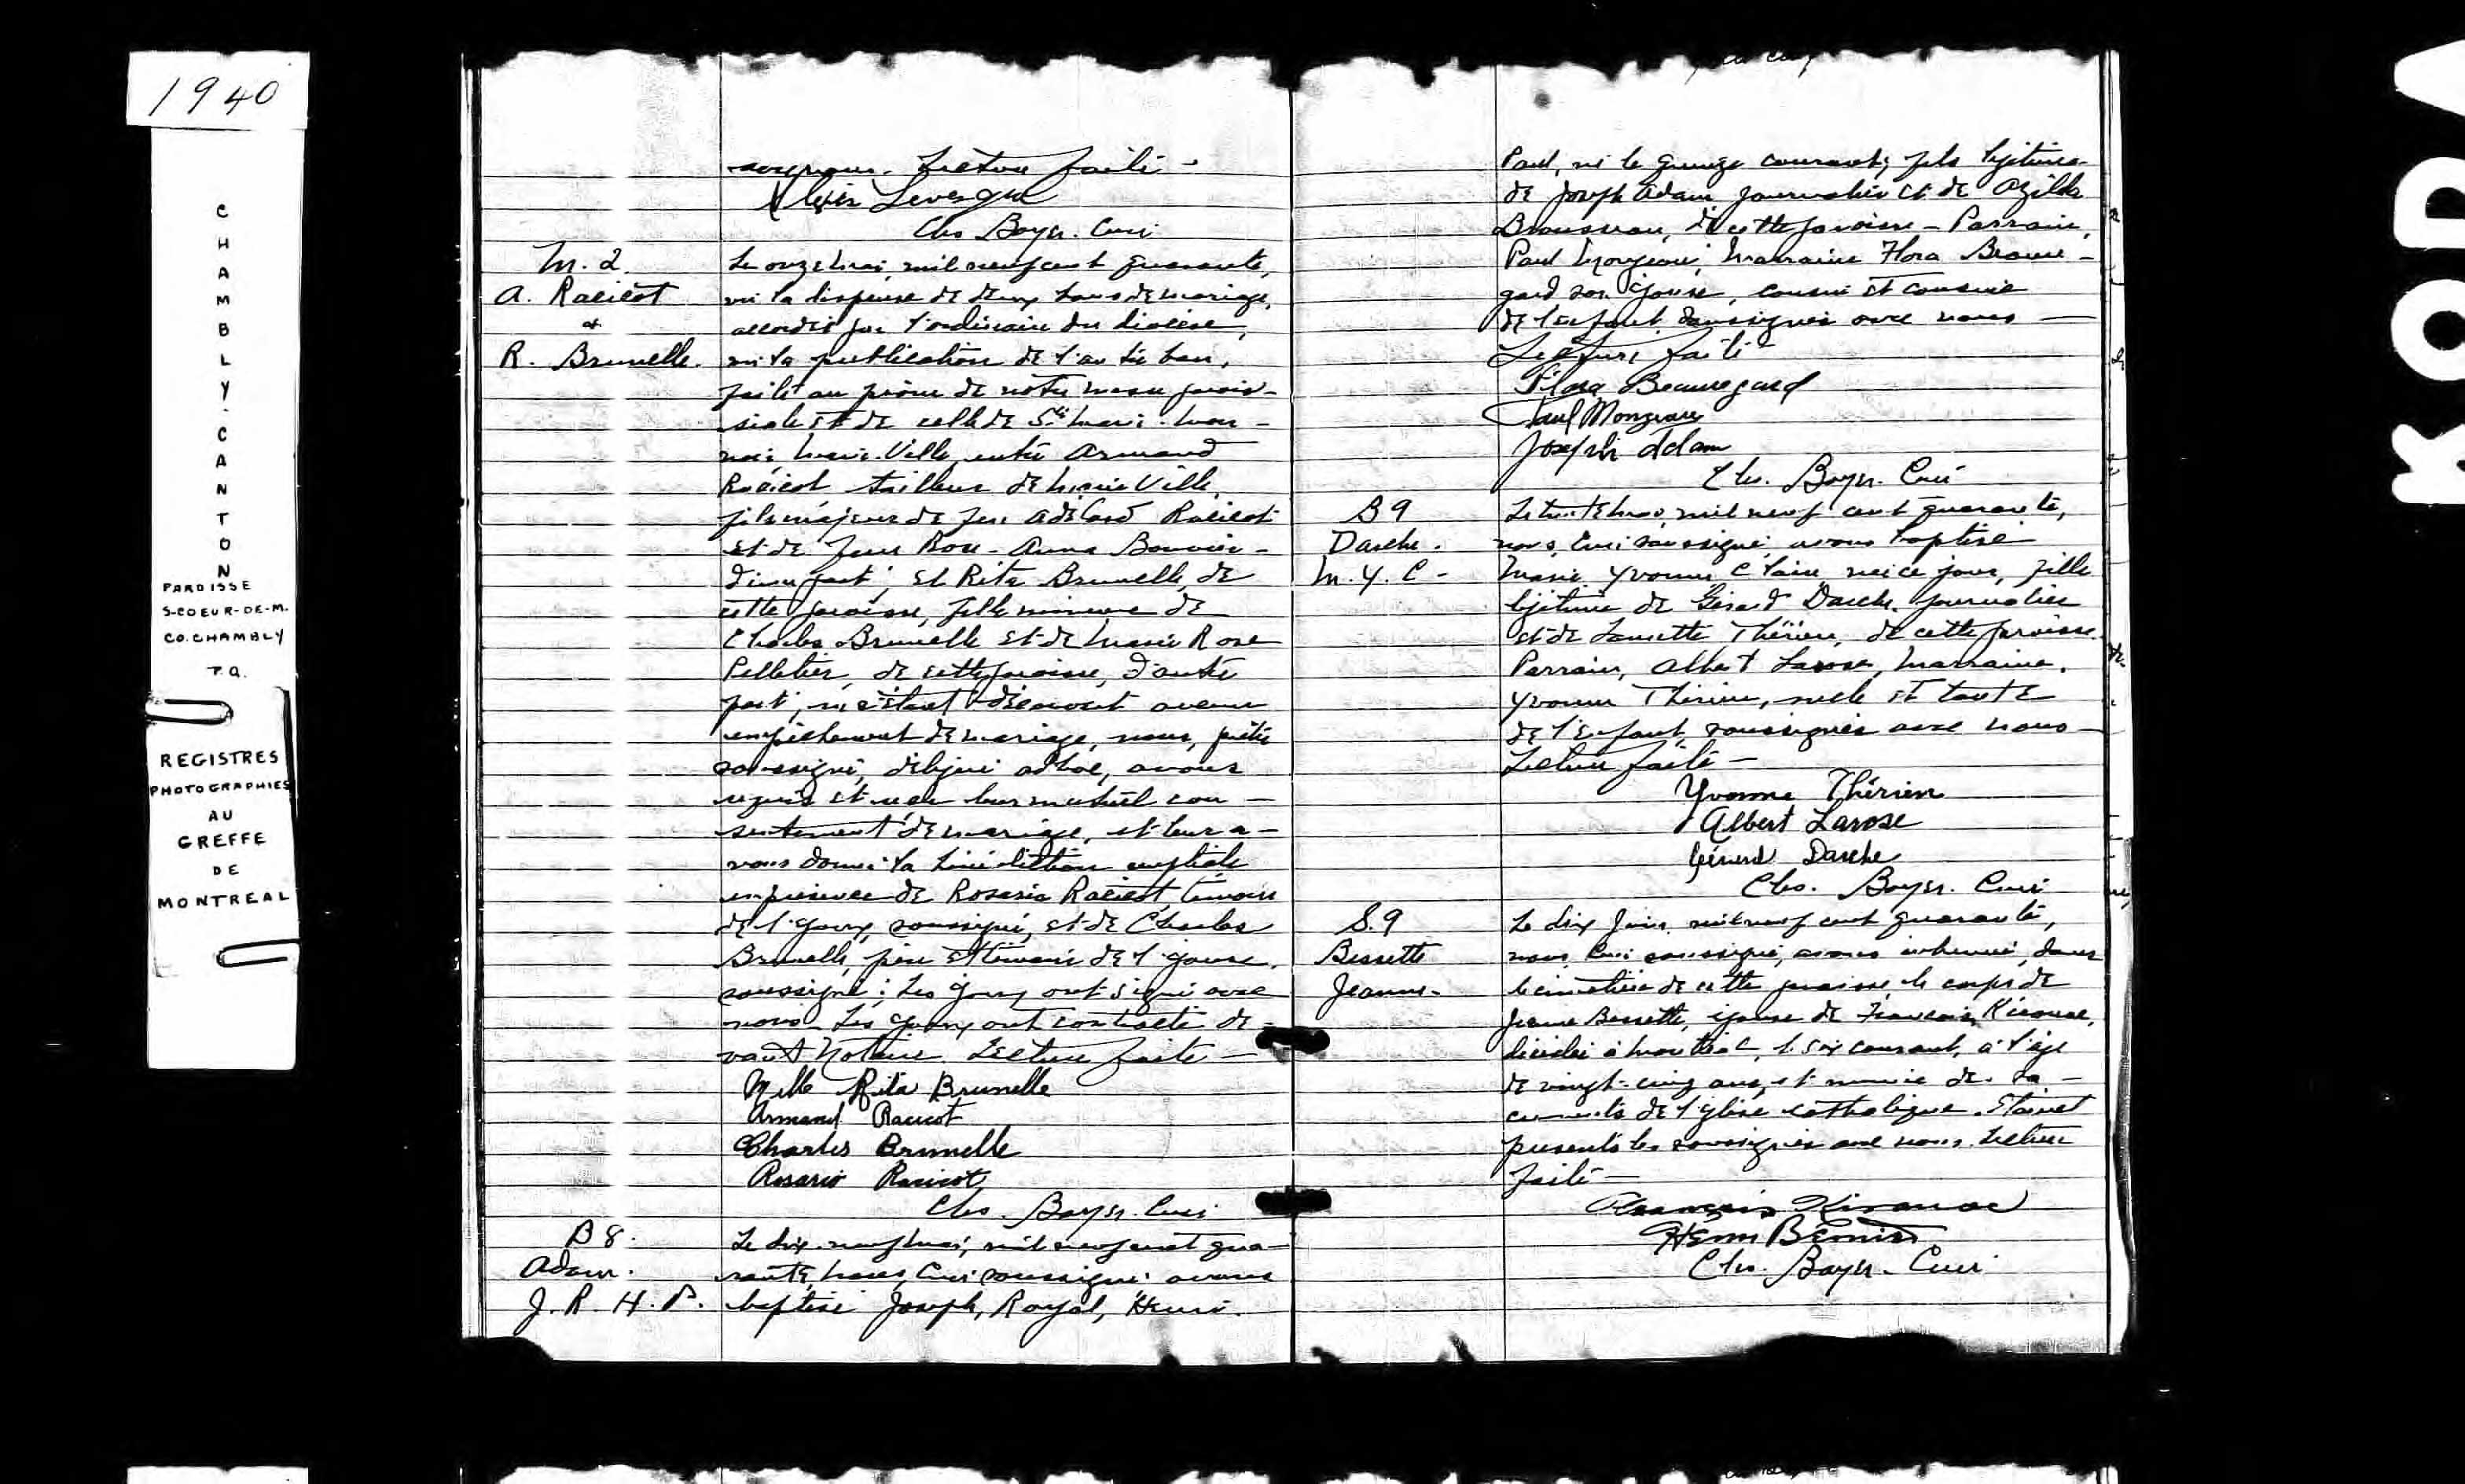 1940
CHAMBLY-CANTON
PAROISSE
S-COEUR-DE-M.
CO. CHAMBLY
P.Q.
REGISTRES
PHOTOGRAPHIES
AU
GREFFE
DE
MONTREAL
KODA
Lecture faite -
Levesque
Chs Boyer. Curé
M. 2
A. Racicot
&
R. Brunelle.
Le onze mai, mil neuf cent quarante,
vu la dispense de deux bans de mariage,
accordée par l'ordinaire du diocèse,
vu la publication de l'autre ban,
faite au prône de notre messe parois-
siale et de celle de Ste Marie
Marieville, entre Armand
Racicot tailleur de Marieville,
fils majeur de feu Adélard Racicot
et de feue Rose-Anna Bouvier
d'une part; et Rita Brunelle, de
cette paroisse, fille mineure de
Charles Brunelle et de Marie Rose
Pelletier, de cette paroisse, d'autre
part; ne s'étant découvert aucun
empêchement de mariage, nous, prêtre
soussigné, délégué ad hoc, avons
requis et reçu leur mutuel con-
sentement de mariage, et leur a-
vons donné la bénédiction nuptiale
en présence de Rosario Racicot, témoin
de l'époux, soussigné, et de Charles
Brunelle, père et témoin de l'épouse,
soussigné; les époux ont signé avec
nous. Les époux ont contracté de-
vant Notaire. Lecture faite -
Melle Rita Brunelle
Armand Racicot
Charles Brunelle
Rosario Racicot
Chs. Boyer. Curé
B 8.
Adam.
J. R. H. P.
Le dix-neuf mai, mil neuf cent qua-
rante, nous, Curé soussigné avons
baptisé Joseph, Royal, Henri.
Paul, né le quinze courant, fils légitime
de Joseph Adam journalier et de Azilda
Brousseau, de cette paroisse - Parrain,
Paul Mongeau, Marraine Flora Beaure-
gard son épouse, cousin et cousine
de l'enfant, soussignés avec nous -
Lecture faite
Flora Beauregard
Paul Mongeau
Joseph Adam
Chs. Boyer. Curé
B 9
Darche.
M. Y. C -
Le trente mai, mil neuf cent quarante,
nous, Curé soussigné, avons baptisé
Marie Yvonne Claire née ce jour, fille
légitime de Gérard Darche, journalier
et de Laurette Thérien, de cette paroisse.
Parrain, Albert Larose, Marraine,
Yvonne Thérien, oncle et tante
de l'enfant, soussignés avec nous -
Lecture faite -
Yvonne Thérien
Albert Larose
Gérard Darche
Chs. Boyer. Curé
S. 9
Bessette
Jeanne-
Le dix juin, mil neuf cent quarante,
nous, Curé soussigné, avons inhumé, dans
le cimetière de cette paroisse le corps de
Jeanne Bessette, épouse de François Kirouac,
décédée à Montréal, le six courant, à l'âge
de vingt-cinq ans, et munie des sa-
crements de l'Eglise catholique. Etaient
présents les soussignés avec nous. Lecture
faite -
François Kirouac
Henri
Chs. Boyer. Curé